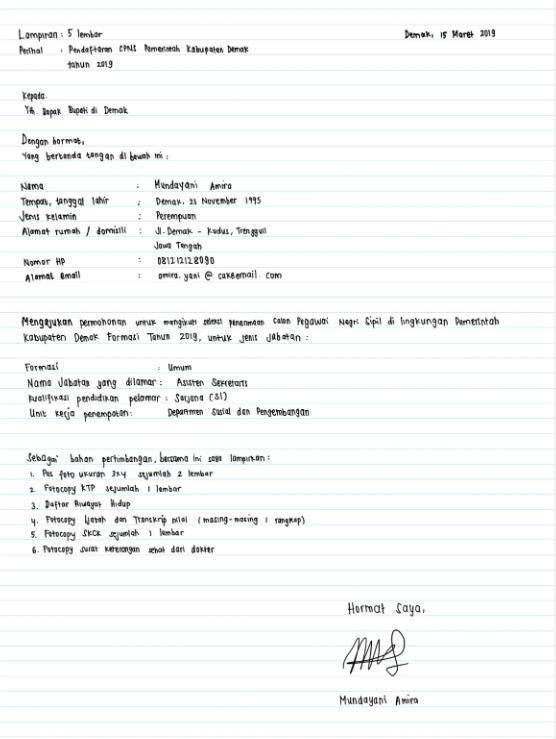 Lampiran : 5 lembar
Demak, 15 Maret 2019
Perihal : Pendaftaran CPNS Pemerintah Kabupaten Demak
tahun 2019
Kepada
Yth. Bapak Bupati di Demak
Dengan hormat,
Yang bertanda tangan di bawah ini :
Nama : Mundayani Amira
Tempat, tanggal lahir : Demak, 25 November 1995
Jenis kelamin : Perempuan
Alamat rumah / domisili : Jl. Demak - Kudus, Trengguli
Jawa Tengah
Nomor HP : 081212128090
Alamat email : amira.yani @ cakeemail.com
Mengajukan permohonan untuk mengikuti seleksi penerimaan Calon Pegawai Negri Sipil di lingkungan Pemerintah
Kabupaten Demak Formasi Tahun 2019, untuk jenis jabatan :
Formasi : Umum
Nama Jabatan yang dilamar : Asisten Sekretaris
Kualifikasi pendidikan pelamar : Sarjana (S1)
Unit kerja penempatan: Departmen Sosial dan Pengembangan
Sebagai bahan pertimbangan, bersama ini saya lampirkan :
1. Pas foto ukuran 3x4 sejumlah 2 lembar
2. Fotocopy KTP sejumlah 1 lembar
3. Daftar Riwayat Hidup
4. Fotocopy Ijazah dan Transkrip nilai (masing-masing 1 rangkap)
5. Fotocopy SKCK sejumlah 1 lembar
6. Fotocopy surat keterangan sehat dari dokter
Hormat Saya,
Mundayani Amira